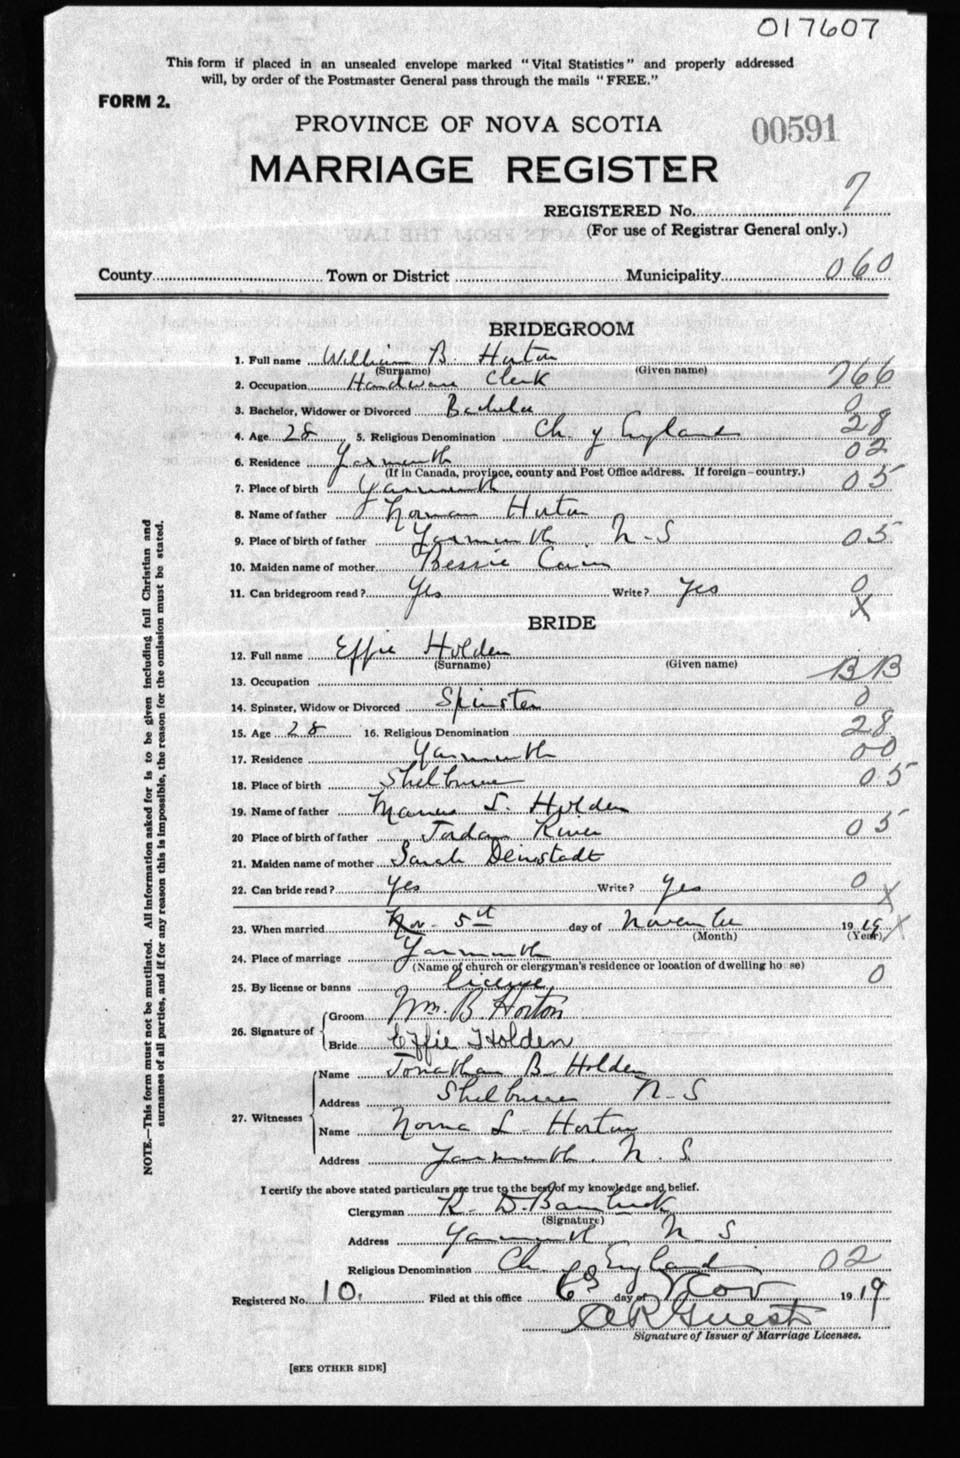 017607
This form if placed in an unsealed envelope marked "Vital Statistics" and properly addressed
will, by order of the Postmaster General pass through the mails "FREE."
FORM 2.
PROVINCE OF NOVA SCOTIA
00591
MARRIAGE REGISTER
REGISTERED No. 7
(For use of Registrar General only.)
County Town or District Municipality 060
BRIDEGROOM
1. Full name William B. Horton
(Surname) (Given name)
2. Occupation Hardware Clerk 766
3. Bachelor, Widower or Divorced Bachelor 0
4. Age 28 5. Religious Denomination Ch. of England 28
6. Residence Yarmouth 02
(If in Canada, province, county and Post Office address. If foreign—country.)
7. Place of birth Yarmouth 05
8. Name of father Norman Horton
9. Place of birth of father Yarmouth N-S 05
10. Maiden name of mother Bessie Cain
11. Can bridegroom read? Yes Write? Yes 0
X
BRIDE
12. Full name Effie Holden
(Surname) (Given name)
13. Occupation BB
14. Spinster, Widow or Divorced Spinster 0
15. Age 28 16. Religious Denomination 28
17. Residence Yarmouth 00
18. Place of birth Shelburne 05
19. Name of father Holden
20 Place of birth of father Jordan River 05
21. Maiden name of mother Sarah Deinstadt
22. Can bride read? Yes Write? Yes 0
X
23. When married Nov. 5th day of November 1919 X
(Month) (Year)
24. Place of marriage Yarmouth
(Name of church or clergyman's residence or location of dwelling house)
25. By license or banns license 0
26. Signature of Groom Wm. B. Horton
Bride Effie Holden
27. Witnesses Name Jonathan B. Holden
Address Shelburne N-S
Name Norma L. Horton
Address Yarmouth. N. S
I certify the above stated particulars are true to the best of my knowledge and belief.
Clergyman R. D. Bambrick
(Signature)
Address Yarmouth N. S
Religious Denomination Ch of England 02
Registered No. 10. Filed at this office 6th day of Nov 1919
A R Guest
Signature of Issuer of Marriage Licenses.
[SEE OTHER SIDE]
NOTE.—This form must not be mutilated. All information asked for is to be given including full Christian and
surnames of all parties, and if for any reason this is impossible, the reason for the omission must be stated.